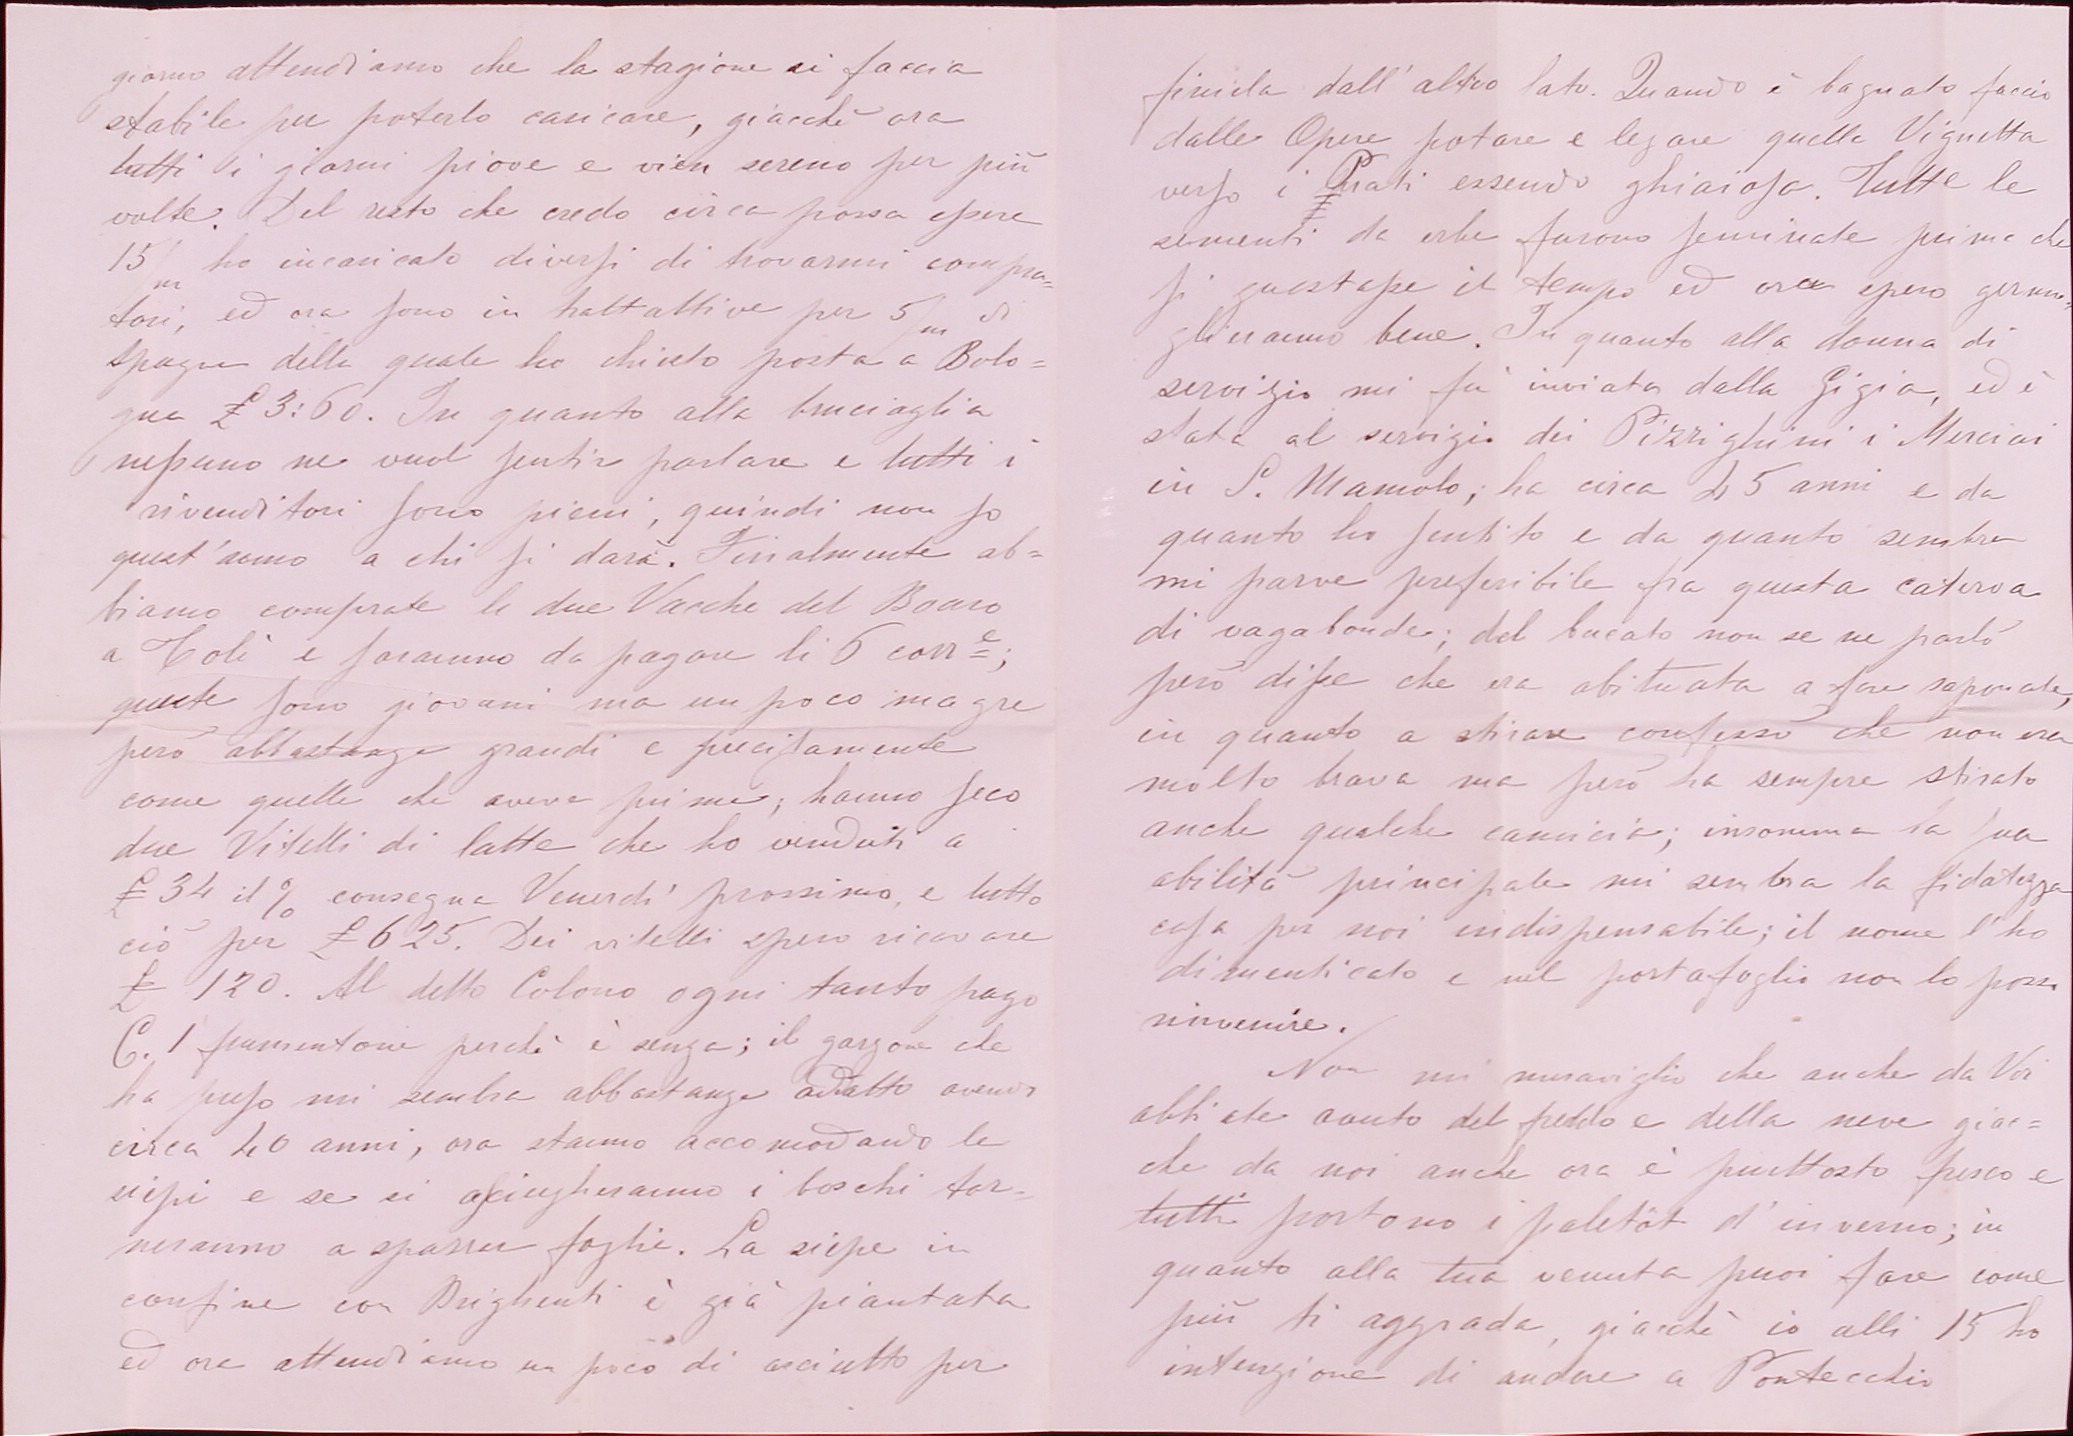 giorno attendiamo che la stagione si faccia
stabile per poterlo caricare, giacchè ora
tutti i giorni piove e vien sereno per più
volte. Del resto che credo circa possa essere
15/m ho incaricato diversi di trovarmi compra=
tori, ed ora sono in trattattive per 5/m di
spagna della quale ho chiesto posta a Bolo=
gna £ 3:60. In quanto alla bruciaglia
nessuno ne vuol sentir parlare e tutti i
rivenditori sono pieni, quindi non so
quest'anno a chi si darà. Finalmente ab=
biamo comprate le due Vacche del Boaro
a Tolè e saranno da pagare li 6 corre;
queste sono giovani ma un poco magre
però abbastanza grandi e precisamente
come quelle che aveva prima; hanno seco
due Vitelli di latte che ho venduti a
£ 34 il % consegna Venerdì prossimo, e tutto
ciò per £ 625. Dei vitelli spero ricavare
£ 120. Al detto Colono ogni tanto pago
C. 1 frumentone perchè è senza; il garzone che
ha preso mi sembra abbastanza adatto avendo
circa 40 anni, ora stanno accomodando le
siepi e se si asciugheranno i boschi tor=
neranno a spazzar foglie. La siepe in
confine con Brighenti è già piantata
ed ora attendiamo un poco di asciutto per
finirla dall'altro lato. Quando è bagnato faccio
dalle Opere potare e legare quella Vignetta
verso i Prati essendo ghiaiosa. Tutte le
sementi da erbe furono seminate prima che
si guastasse il tempo ed ora spero germo=
glieranno bene. In quanto alla donna di
servizio mi fù inviata dalla Gigia, ed è
stata al servizio dei Pizzighini i Merciai
in S. Mamolo; ha circa 45 anni e da
quanto ho sentito e da quanto sembra
mi parve preferibile fra questa caterva
di vagabonde; del bucato non se ne parlò
però disse che era abituata a fare saponate,
in quanto a stirare confessò che non era
molto brava ma però ha sempre stirato
anche qualche camicia; insomma la sua
abilità principale mi sembra la fidatezza
cosa per noi indispensabile; il nome l'ho
dimenticato e nel portafoglio non lo posso
rinvenire.
Non mi meraviglio che anche da Voi
abbiate avuto del freddo e della neve giac=
che da noi anche ora è piuttosto fresco e
tutti portono i paletôt d'inverno; in
quanto alla tua venuta puoi fare come
più ti aggrada, giacchè io alli 15 ho
intenzione di andare a Pontecchio